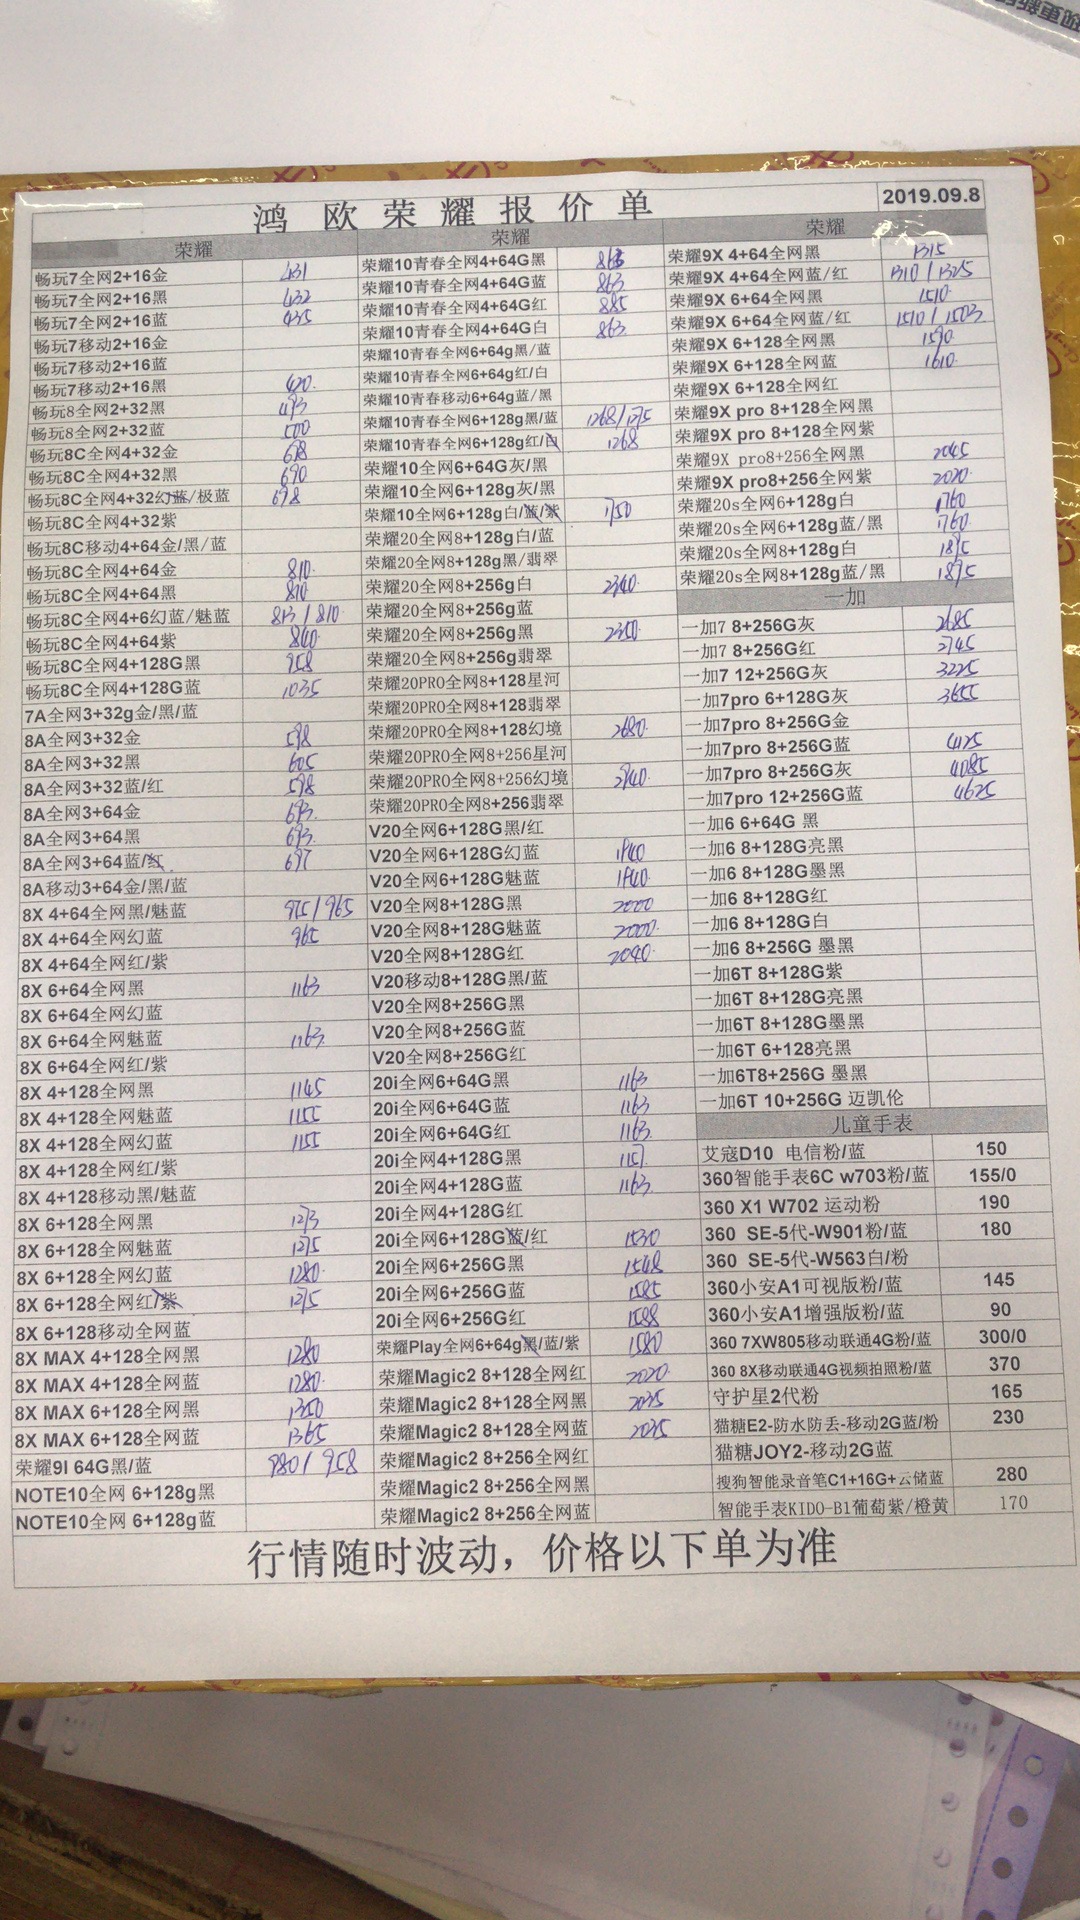 鸿 欧 荣 耀 报 价 单
2019.09.8
荣耀
畅玩7全网2+16金 431
畅玩7全网2+16黑 432
畅玩7全网2+16蓝 435
畅玩7移动2+16金
畅玩7移动2+16蓝
畅玩7移动2+16黑 420
畅玩8全网2+32黑 493
畅玩8全网2+32蓝 500
畅玩8C全网4+32金 698
畅玩8C全网4+32黑 690
畅玩8C全网4+32幻蓝/极蓝 698
畅玩8C全网4+32紫
畅玩8C移动4+64金/黑/蓝
畅玩8C全网4+64金 810
畅玩8C全网4+64黑 810
畅玩8C全网4+6幻蓝/魅蓝 813 / 810
畅玩8C全网4+64紫 840
畅玩8C全网4+128G黑 958
畅玩8C全网4+128G蓝 1035
7A全网3+32g金/黑/蓝
8A全网3+32金 598
8A全网3+32黑 605
8A全网3+32蓝/红 598
8A全网3+64金 693
8A全网3+64黑 693
8A全网3+64蓝/红 697
8A移动3+64金/黑/蓝
8X 4+64全网黑/魅蓝 975 / 965
8X 4+64全网幻蓝 965
8X 4+64全网红/紫
8X 6+64全网黑 1163
8X 6+64全网幻蓝
8X 6+64全网魅蓝 1163
8X 6+64全网红/紫
8X 4+128全网黑 1145
8X 4+128全网魅蓝 1155
8X 4+128全网幻蓝 1155
8X 4+128全网红/紫
8X 4+128移动黑/魅蓝
8X 6+128全网黑 1273
8X 6+128全网魅蓝 1275
8X 6+128全网幻蓝 1280
8X 6+128全网红/紫 1275
8X 6+128移动全网蓝
8X MAX 4+128全网黑 1280
8X MAX 4+128全网蓝 1280
8X MAX 6+128全网黑 1350
8X MAX 6+128全网蓝 1365
荣耀9I 64G黑/蓝 980 / 958
NOTE10全网 6+128g黑
NOTE10全网 6+128g蓝
荣耀
荣耀10青春全网4+64G黑 863
荣耀10青春全网4+64G蓝 863
荣耀10青春全网4+64G红 885
荣耀10青春全网4+64G白 863
荣耀10青春全网6+64g黑/蓝
荣耀10青春全网6+64g红/白
荣耀10青春移动6+64g蓝/黑
荣耀10青春全网6+128g黑/蓝 1268/1275
荣耀10青春全网6+128g红/白 1268
荣耀10全网6+64G灰/黑
荣耀10全网6+128g灰/黑
荣耀10全网6+128g白/蓝/紫 1750
荣耀20全网8+128g白/蓝
荣耀20全网8+128g黑/翡翠
荣耀20全网8+256g白 2340
荣耀20全网8+256g蓝
荣耀20全网8+256g黑 2350
荣耀20全网8+256g翡翠
荣耀20PRO全网8+128星河
荣耀20PRO全网8+128翡翠
荣耀20PRO全网8+128幻境 2680
荣耀20PRO全网8+256星河
荣耀20PRO全网8+256幻境 2940
荣耀20PRO全网8+256翡翠
V20全网6+128G黑/红
V20全网6+128G幻蓝 1940
V20全网6+128G魅蓝 1940
V20全网8+128G黑 2000
V20全网8+128G魅蓝 2000
V20全网8+128G红 2040
V20移动8+128G黑/蓝
V20全网8+256G黑
V20全网8+256G蓝
V20全网8+256G红
20i全网6+64G黑 1163
20i全网6+64G蓝 1163
20i全网6+64G红 1163
20i全网4+128G黑 1157
20i全网4+128G蓝 1163
20i全网4+128G红
20i全网6+128G蓝/红 1530
20i全网6+256G黑 1548
20i全网6+256G蓝 1585
20i全网6+256G红 1588
荣耀Play全网6+64g黑/蓝/紫 1580
荣耀Magic2 8+128全网红 2020
荣耀Magic2 8+128全网黑 2035
荣耀Magic2 8+128全网蓝 2035
荣耀Magic2 8+256全网红
荣耀Magic2 8+256全网黑
荣耀Magic2 8+256全网蓝
荣耀
荣耀9X 4+64全网黑 1315
荣耀9X 4+64全网蓝/红 1310 / 1325
荣耀9X 6+64全网黑 1510
荣耀9X 6+64全网蓝/红 1510 / 1503
荣耀9X 6+128全网黑 1590
荣耀9X 6+128全网蓝 1610
荣耀9X 6+128全网红
荣耀9X pro 8+128全网黑
荣耀9X pro 8+128全网紫
荣耀9X pro8+256全网黑 2045
荣耀9X pro8+256全网紫 2020
荣耀20s全网6+128g白 1760
荣耀20s全网6+128g蓝/黑 1760
荣耀20s全网8+128g白 1875
荣耀20s全网8+128g蓝/黑 1875
一加
一加7 8+256G灰 2685
一加7 8+256G红 2745
一加7 12+256G灰 3225
一加7pro 6+128G灰 3655
一加7pro 8+256G金
一加7pro 8+256G蓝 4125
一加7pro 8+256G灰 4085
一加7pro 12+256G蓝 4625
一加6 6+64G 黑
一加6 8+128G亮黑
一加6 8+128G墨黑
一加6 8+128G红
一加6 8+128G白
一加6 8+256G 墨黑
一加6T 8+128G紫
一加6T 8+128G亮黑
一加6T 8+128G墨黑
一加6T 6+128亮黑
一加6T8+256G 墨黑
一加6T 10+256G 迈凯伦
儿童手表
艾寇D10 电信粉/蓝 150
360智能手表6C w703粉/蓝 155/0
360 X1 W702 运动粉 190
360 SE-5代-W901粉/蓝 180
360 SE-5代-W563白/粉
360小安A1可视版粉/蓝 145
360小安A1增强版粉/蓝 90
360 7XW805移动联通4G粉/蓝 300/0
360 8X移动联通4G视频拍照粉/蓝 370
守护星2代粉 165
猫糖E2-防水防丢-移动2G蓝/粉 230
猫糖JOY2-移动2G蓝
搜狗智能录音笔C1+16G+云储蓝 280
智能手表KIDO-B1葡萄紫/橙黄 170
行情随时波动，价格以下单为准